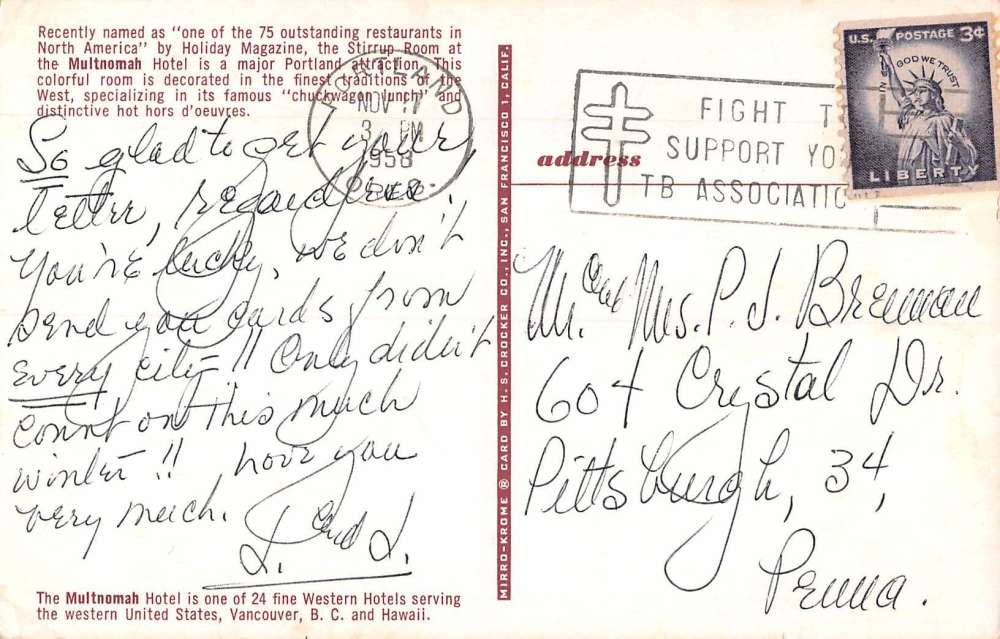 Recently named as "one of the 75 outstanding restaurants in
North America" by Holiday Magazine, the Stirrup Room at
the Multnomah Hotel is a major Portland attraction. This
colorful room is decorated in the finest traditions of the
West, specializing in its famous "chuckwagon lunch" and
distinctive hot hors d'oeuvres.
So glad to get your
letter, regardless.
You're lucky, we don't
send you cards from
every city!! Only didn't
count on this much
winter!! Love you
very much.
L. and L.
The Multnomah Hotel is one of 24 fine Western Hotels serving
the western United States, Vancouver, B. C. and Hawaii.
MIRRO-KROME ® CARD BY H. S. CROCKER CO., INC., SAN FRANCISCO 1, CALIF.
PORTLAND
NOV 17
3 PM
1958
OREG.
FIGHT T
SUPPORT YO
TB ASSOCIATIO
U.S. POSTAGE 3¢
IN GOD WE TRUST
LIBERTY
address
Mr. and Mrs. P. J. Brennan
604 Crystal Dr.
Pittsburgh, 34,
Penna.